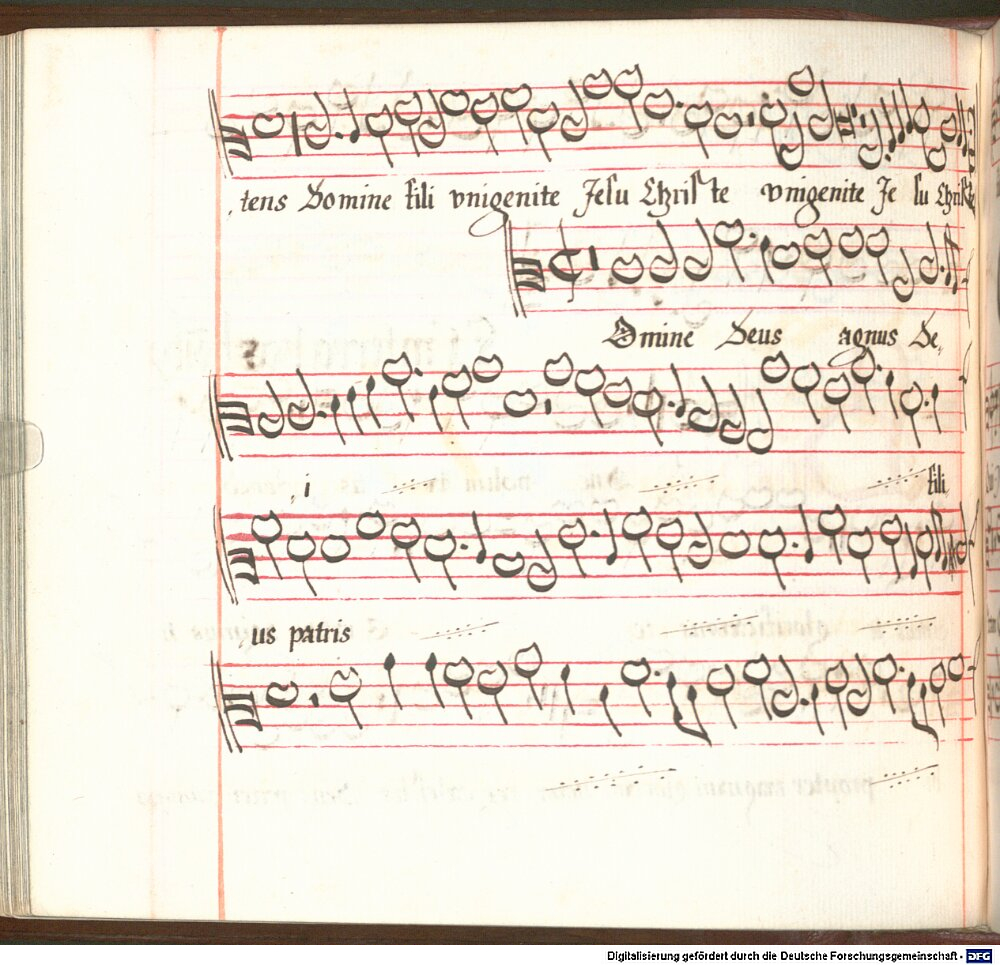 tens Domine fili vnigenite Jesu Christe vnigenite Je su Christe
Omine Deus agnus De,
,i fili
us patris
Digitalisierung gefördert durch die Deutsche Forschungsgemeinschaft - DFG